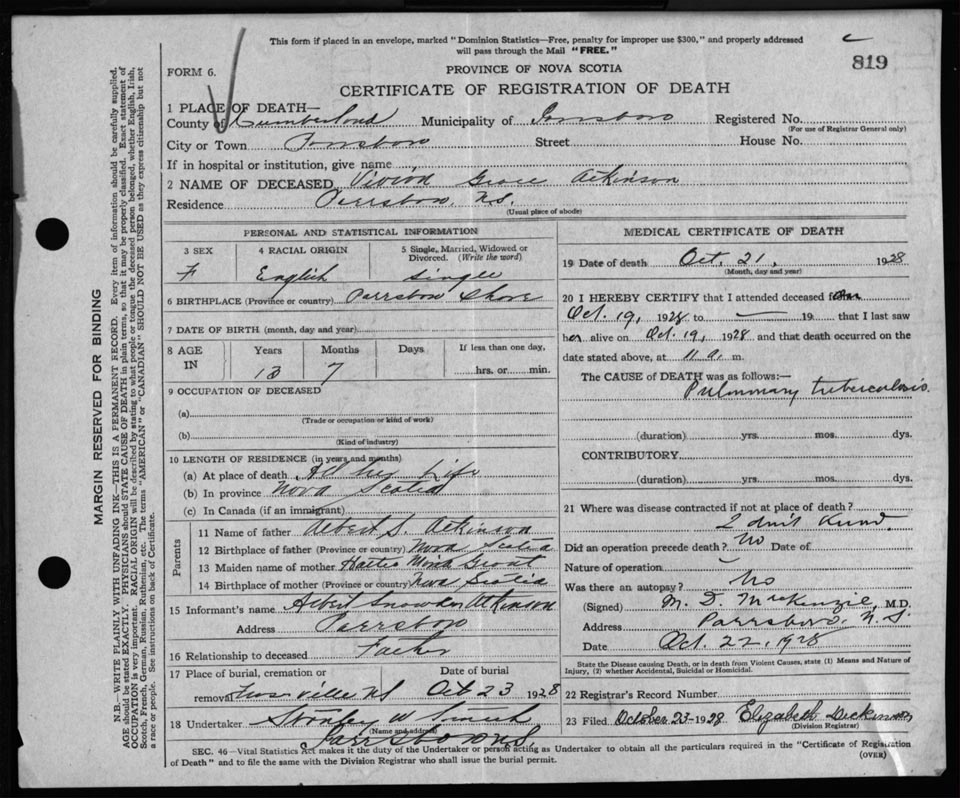 This form if placed in an envelope, marked "Dominion Statistics—Free, penalty for improper use $300," and properly addressed
will pass through the Mail "FREE."
819
FORM 6.
PROVINCE OF NOVA SCOTIA
CERTIFICATE OF REGISTRATION OF DEATH
MARGIN RESERVED FOR BINDING
N.B.—WRITE PLAINLY WITH UNFADING INK—THIS IS A PERMANENT RECORD. Every item of information should be carefully supplied.
AGE should be stated EXACTLY. PHYSICIANS should STATE CAUSE OF DEATH in plain terms, so that it may be properly classified. Exact statement of
OCCUPATION is very important. RACIAL ORIGIN will be described by stating to what people or tongue the deceased person belonged, whether English, Irish,
Scotch, French, German, Russian, Ruthenian, etc. The terms "AMERICAN" or "CANADIAN" SHOULD NOT BE USED as they express citizenship but not
a race or people. See instructions on back of Certificate.
1 PLACE OF DEATH—
County of Cumberland Municipality of Parrsboro Registered No.
(For use of Registrar General only)
City or Town Parrsboro Street House No.
If in hospital or institution, give name
2 NAME OF DECEASED Vivian Grace Atkinson
Residence Parrsboro, N.S.
(Usual place of abode)
PERSONAL AND STATISTICAL INFORMATION
3 SEX 4 RACIAL ORIGIN 5 Single, Married, Widowed or Divorced. (Write the word)
F English Single
6 BIRTHPLACE (Province or country) Parrsboro Shore
7 DATE OF BIRTH (month, day and year)
8 AGE IN Years Months Days If less than one day,
13 7 hrs. or min.
9 OCCUPATION OF DECEASED
(a)
(Trade or occupation or kind of work)
(b)
(Kind of industry)
10 LENGTH OF RESIDENCE (in years and months)
(a) At place of death All her Life
(b) In province Nova Scotia
(c) In Canada (if an immigrant)
Parents
11 Name of father Albert S. Atkinson
12 Birthplace of father (Province or country) Nova Scotia
13 Maiden name of mother Hattie Grant
14 Birthplace of mother (Province or country) Nova Scotia
15 Informant's name Albert Snowden Atkinson
Address Parrsboro
16 Relationship to deceased Father
17 Place of burial, cremation or Date of burial
removal N.S. Oct 23 1928
18 Undertaker Stanley W Smith
(Name and address)
Parrsboro N.S.
MEDICAL CERTIFICATE OF DEATH
19 Date of death Oct. 21, 1928
(Month, day and year)
20 I HEREBY CERTIFY that I attended deceased from
Oct. 19, 1928 to — 19 that I last saw
her alive on Oct. 19, 1928 and that death occurred on the
date stated above, at 11 a. m.
The CAUSE of DEATH was as follows:—
Pulmonary tuberculosis.
(duration) yrs. mos. dys.
CONTRIBUTORY
(duration) yrs. mos. dys.
21 Where was disease contracted if not at place of death?
I don't know.
Did an operation precede death? No Date of
Nature of operation
Was there an autopsy? No
(Signed) M. D. MacKenzie, M.D.
Address Parrsboro, N.S.
Date Oct. 22, 1928
State the Disease causing Death, or in death from Violent Causes, state (1) Means and Nature of
Injury, (2) whether Accidental, Suicidal or Homicidal.
22 Registrar's Record Number
23 Filed October 23-1928 Elizabeth Dickinson
(Division Registrar)
SEC. 46—Vital Statistics Act makes it the duty of the Undertaker or person acting as Undertaker to obtain all the particulars required in the "Certificate of Registration
of Death" and to file the same with the Division Registrar who shall issue the burial permit.
(OVER)